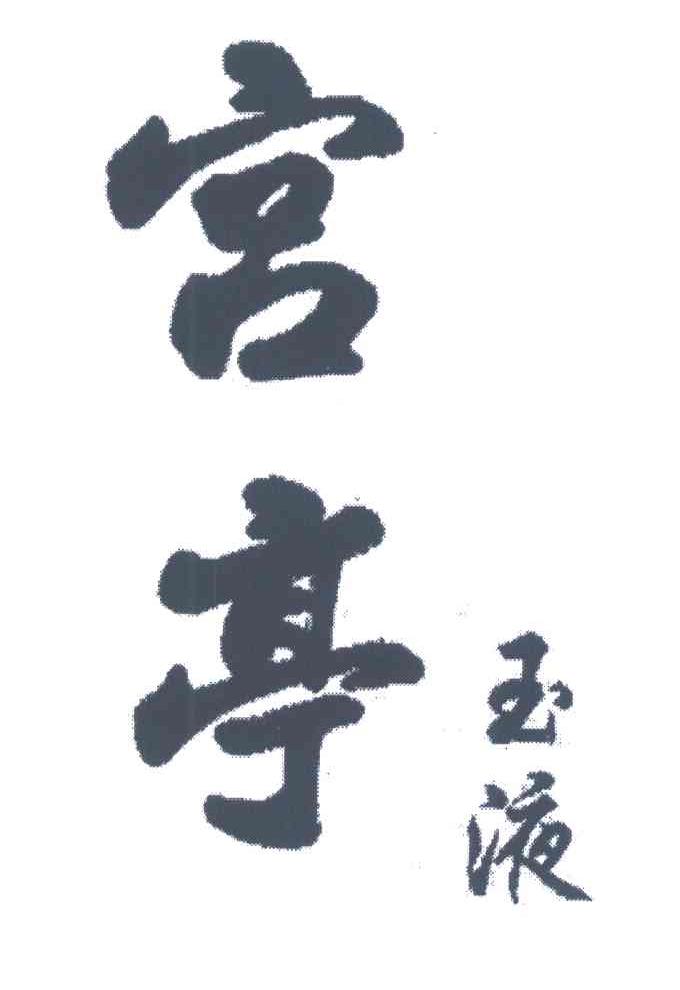 宫亭
玉液